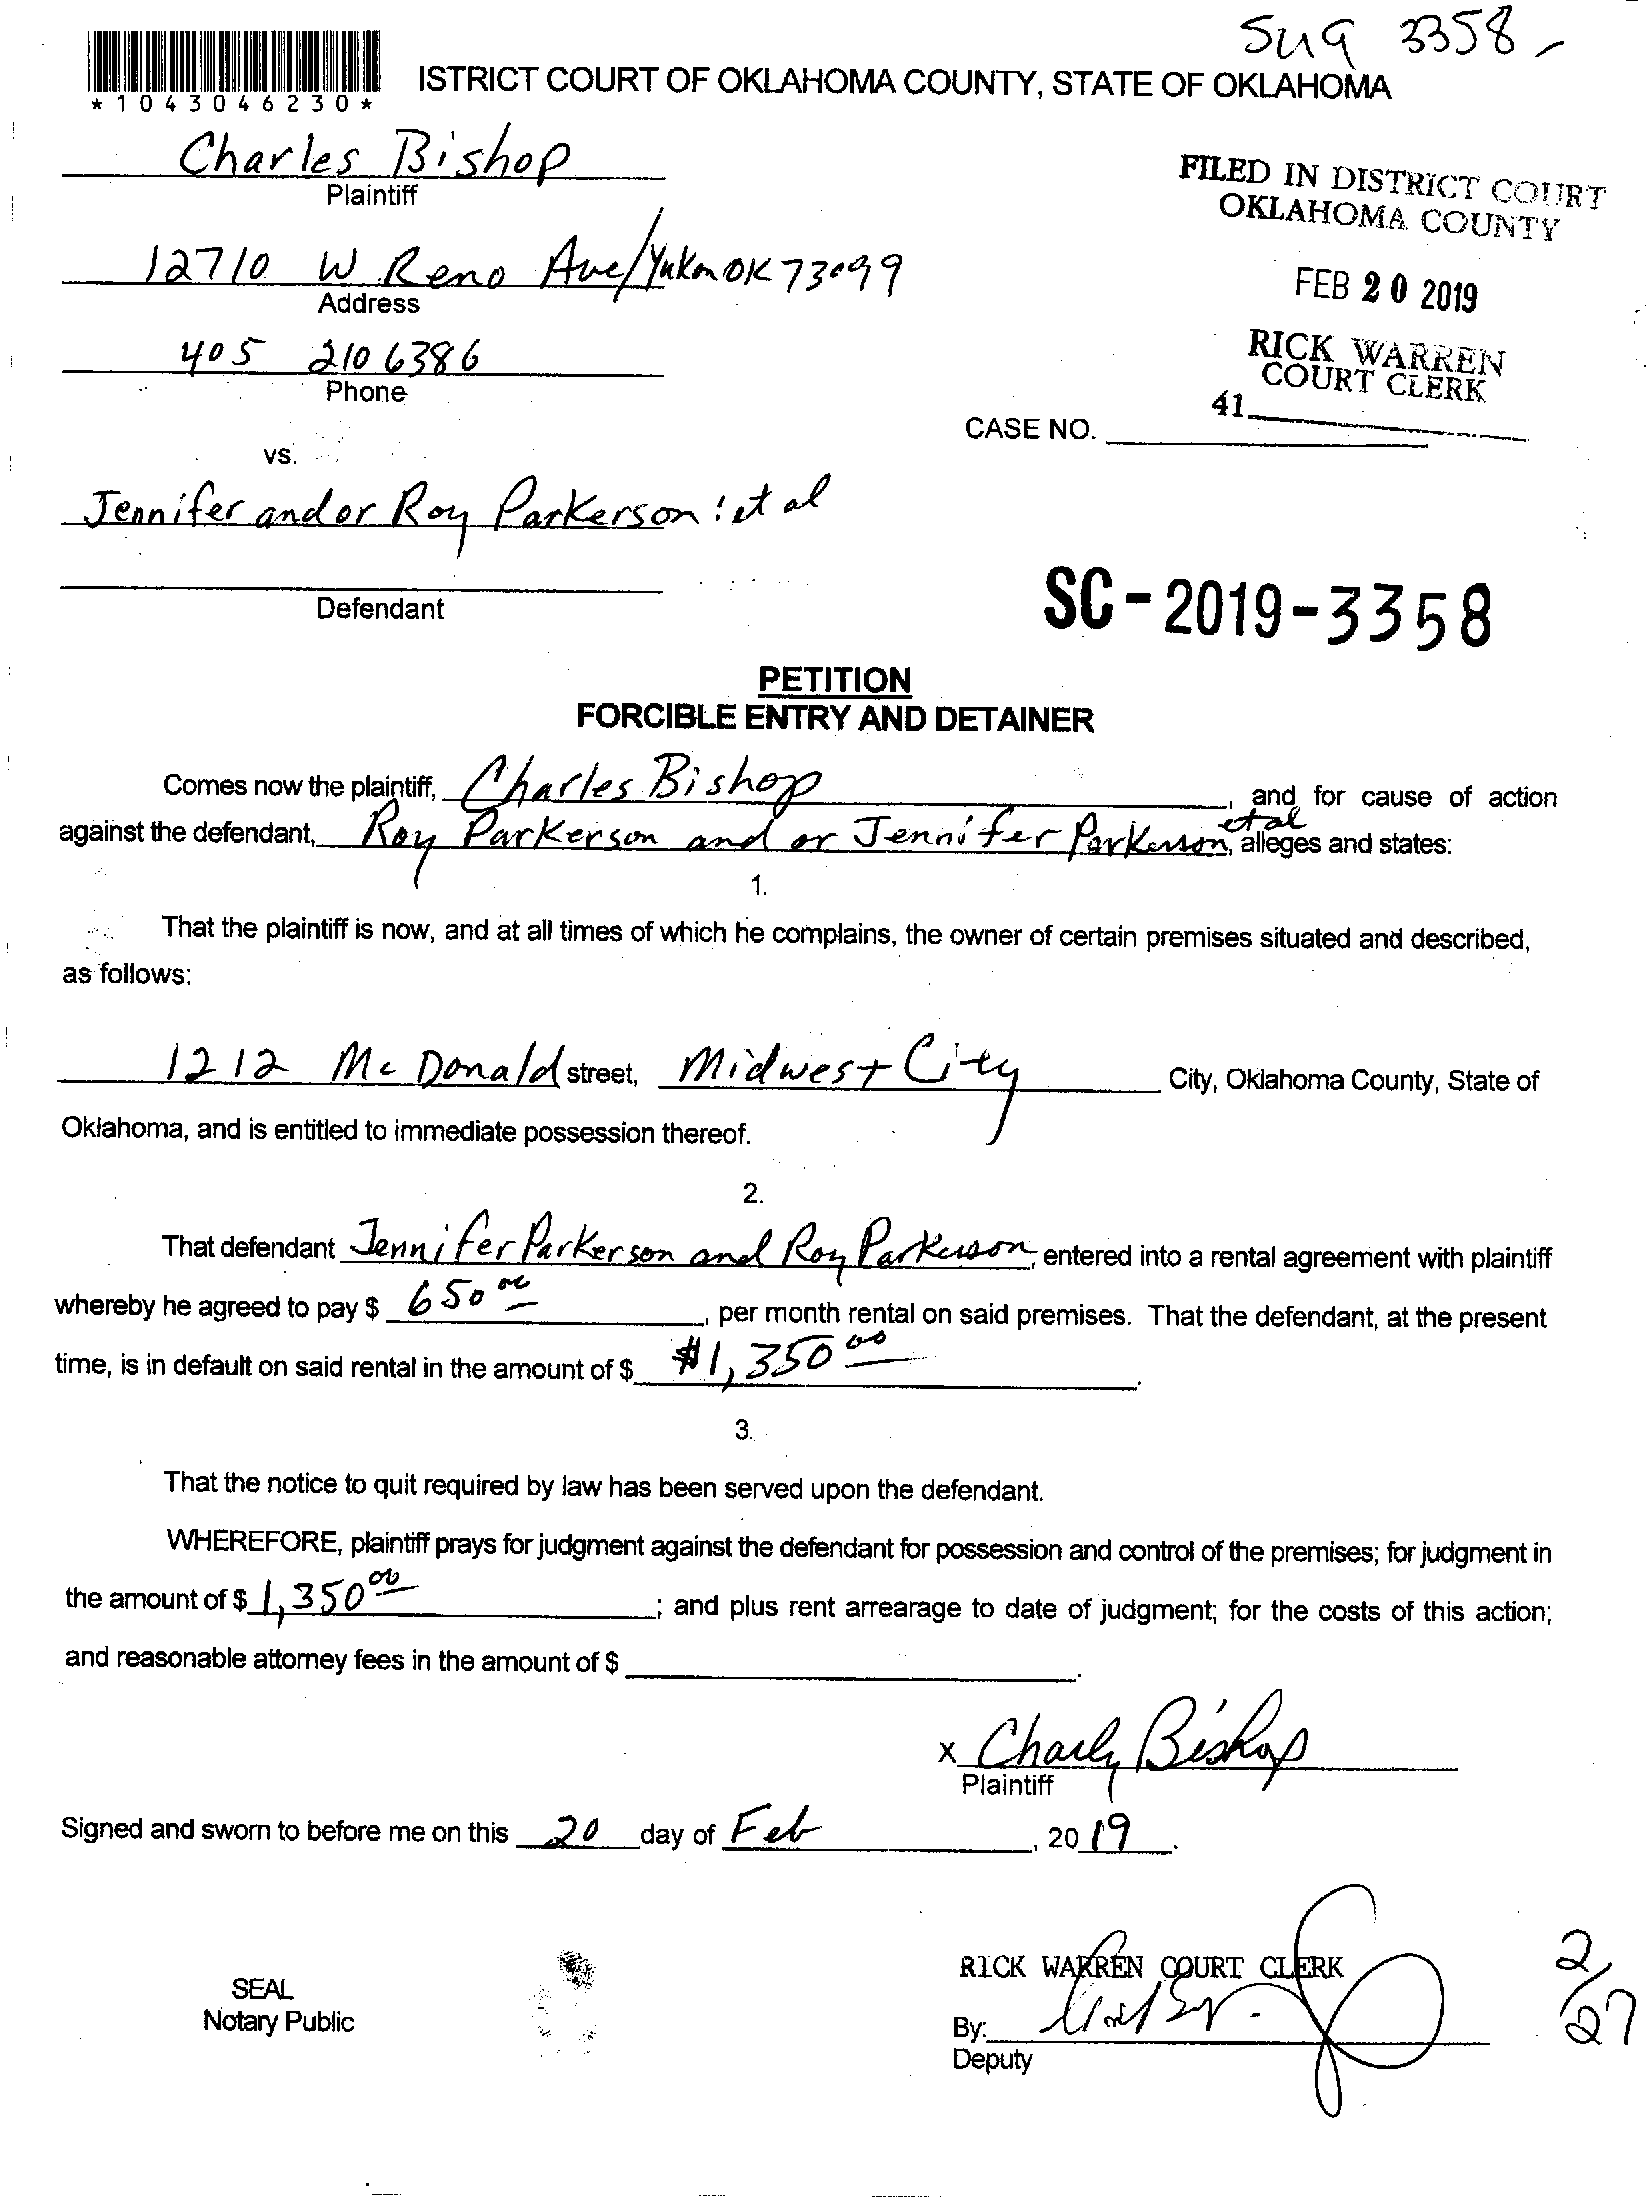 SM9 3358-
*1043046230*
ISTRICT COURT OF OKLAHOMA COUNTY, STATE OF OKLAHOMA
Charles Bishop
Plaintiff
FILED IN DISTRICT COURT
OKLAHOMA COUNTY
12710 W Reno Ave/Yukon OK 73099
Address
FEB 20 2019
405 210 6386
Phone
RICK WARREN
COURT CLERK
41
CASE NO.
vs.
Jennifer andor Roy Parkerson : et al
Defendant
SC-2019-3358
PETITION
FORCIBLE ENTRY AND DETAINER
Comes now the plaintiff, Charles Bishop, and for cause of action
against the defendant, Roy Parkerson and or Jennifer Parkerson, et al alleges and states:
1.
That the plaintiff is now, and at all times of which he complains, the owner of certain premises situated and described,
as follows:
1212 Mc Donald street, Midwest City City, Oklahoma County, State of
Oklahoma, and is entitled to immediate possession thereof.
2.
That defendant Jennifer Parkerson and Roy Parkerson, entered into a rental agreement with plaintiff
whereby he agreed to pay $ 650 00, per month rental on said premises. That the defendant, at the present
time, is in default on said rental in the amount of $ $1,350 00.
3.
That the notice to quit required by law has been served upon the defendant.
WHEREFORE, plaintiff prays for judgment against the defendant for possession and control of the premises; for judgment in
the amount of $ 1,350 00; and plus rent arrearage to date of judgment; for the costs of this action;
and reasonable attorney fees in the amount of $ .
x Charles Bishop
Plaintiff
Signed and sworn to before me on this 20 day of Feb, 2019.
SEAL
Notary Public
RICK WARREN COURT CLERK
By:
Deputy
2/27